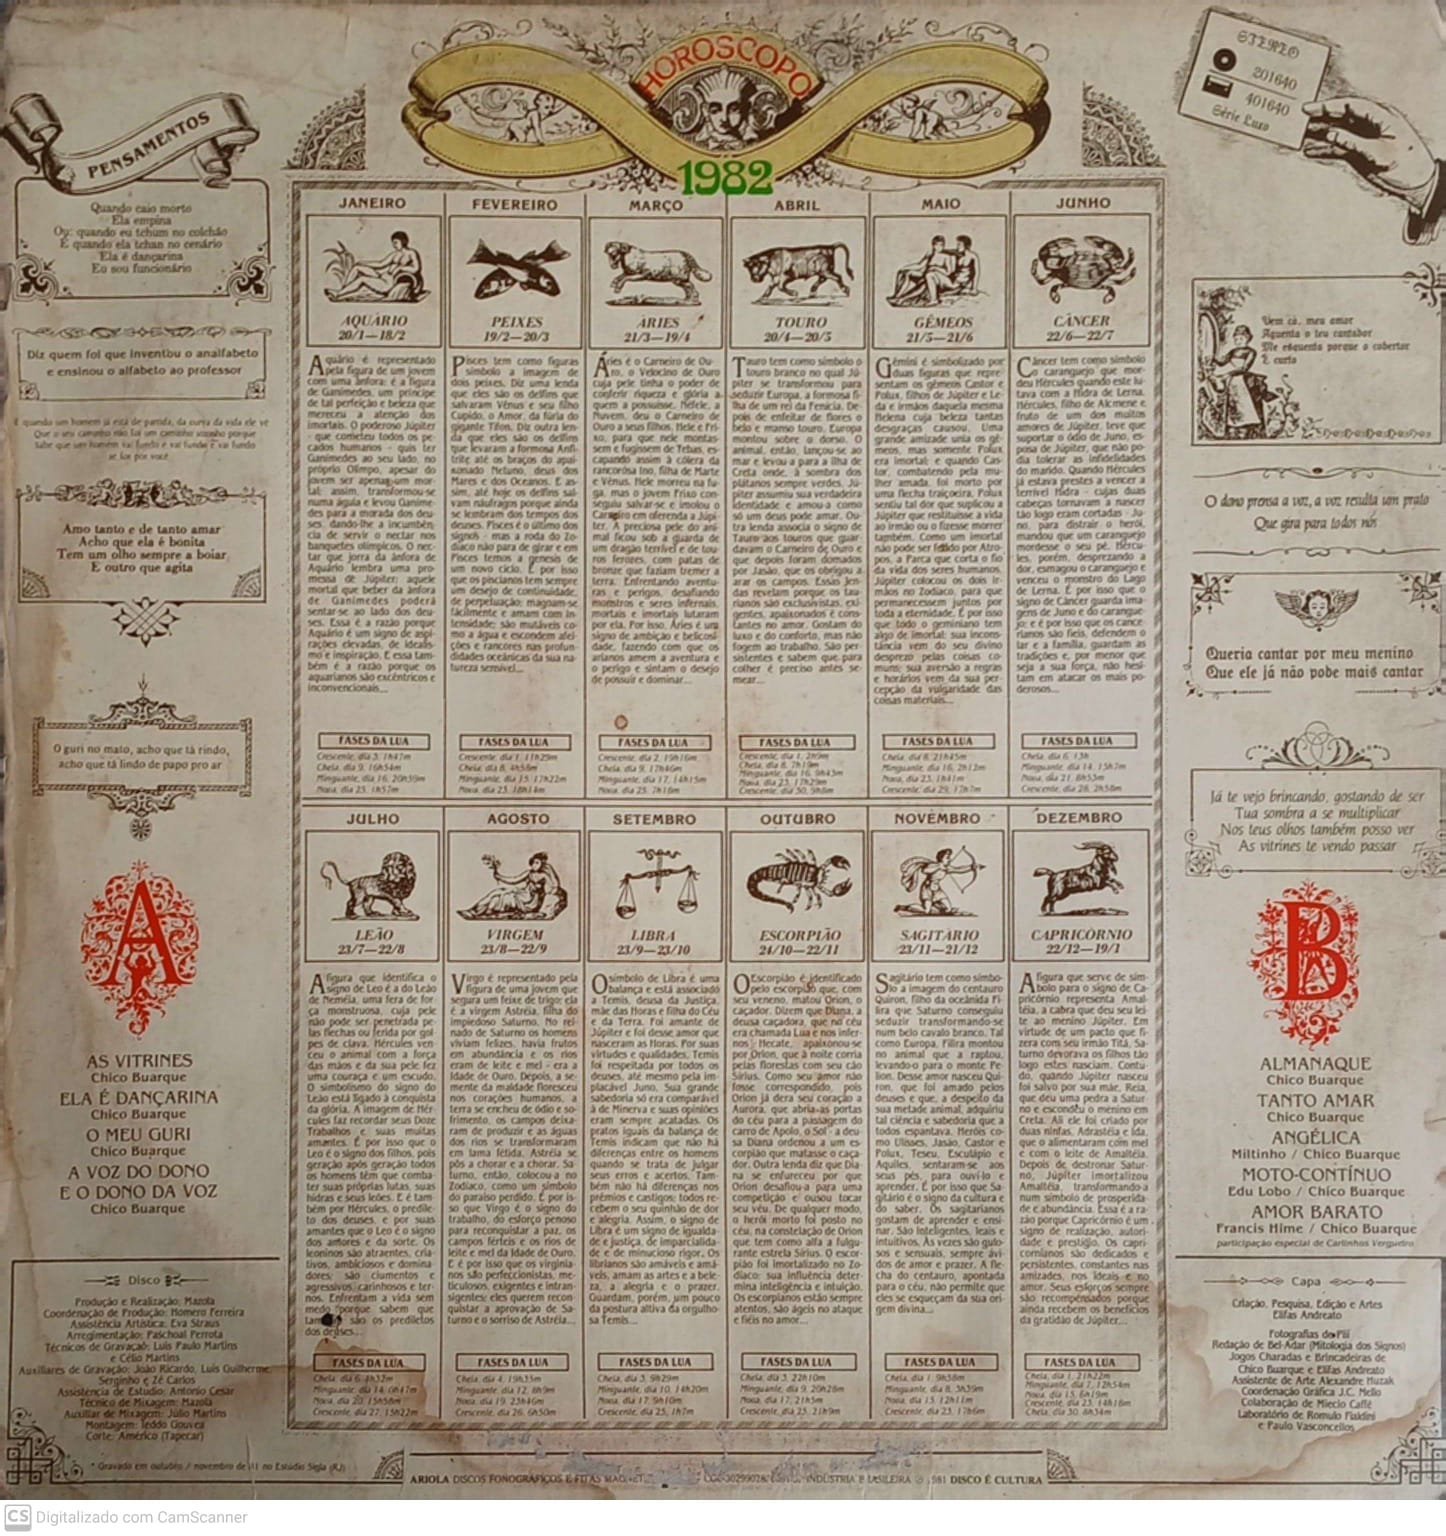 HOROSCOPO
1982
STEREO
201640
401640
Série Luxo
PENSAMENTOS
Quando caio morto
Ela empina
Ou: quando eu tchum no colchão
É quando ela tchan no cenário
Ela é dançarina
Eu sou funcionário
Diz quem foi que inventou o analfabeto
e ensinou o alfabeto ao professor
E quando um homem já está de partida, da curva da vida ele vê
Que o seu caminho não foi um caminho sozinho porque
Sabe que um homem vai fundo e vai fundo e vai fundo
se for por você
Amo tanto e de tanto amar
Acho que ela é bonita
Tem um olho sempre a boiar
E outro que agita
O guri no mato, acho que tá rindo,
acho que tá lindo de papo pro ar
A
AS VITRINES
Chico Buarque
ELA É DANÇARINA
Chico Buarque
O MEU GURI
Chico Buarque
A VOZ DO DONO
E O DONO DA VOZ
Chico Buarque
Disco
Produção e Realização: Mazola
Coordenação de Produção: Homero Ferreira
Assistência Artística: Eva Straus
Arregimentação: Paschoal Perrota
Técnicos de Gravação: Luis Paulo Martins
e Célio Martins
Auxiliares de Gravação: João Ricardo, Luis Guilherme,
Serginho e Zé Carlos
Assistência de Estúdio: Antonio Cesar
Técnico de Mixagem: Mazola
Auxiliar de Mixagem: Julio Martins
Montagem: Teddo Gouvea
Corte: Américo (Tapecar)
* Gravado em outubro / novembro de 81 no Estúdio Sigla (RJ)
JANEIRO
AQUÁRIO
20/1—18/2
Aquário é representado
pela figura de um jovem
com uma ânfora: é a figura
de Ganimedes, um príncipe
de tal perfeição e beleza que
mereceu a atenção dos
imortais. O poderoso Júpiter
- que cometeu todos os pe-
cados humanos - quis ter
Ganimedes ao seu lado, no
próprio Olimpo, apesar do
jovem ser apenas um mor-
tal; assim, transformou-se
numa águia e levou Ganime-
des para a morada dos deu-
ses, dando-lhe a incumbên-
cia de servir o nectar nos
banquetes olímpicos. O nec-
tar que jorra da ânfora de
Aquário lembra uma pro-
messa de Júpiter: aquele
mortal que beber da ânfora
de Ganimedes poderá
sentar-se ao lado dos deu-
ses. Essa é a razão porque
Aquário é um signo de aspi-
rações elevadas, de idealis-
mo e inspiração. E essa tam-
bém é a razão porque os
aquarianos são excêntricos e
inconvencionais...
FASES DA LUA
Crescente, dia 3, 1h47m
Cheia, dia 9, 16h54m
Minguante, dia 16, 20h59m
Nova, dia 25, 1h57m
FEVEREIRO
PEIXES
19/2—20/3
Pisces tem como figuras
símbolo a imagem de
dois peixes. Diz uma lenda
que eles são os delfins que
salvaram Vênus e seu filho
Cupido, o Amor, da fúria do
gigante Tifon. Diz outra len-
da que eles são os delfins
que levaram a formosa Anfi-
trite até os braços do apai-
xonado Netuno, deus dos
Mares e dos Oceanos. E as-
sim, até hoje os delfins sal-
vam náufragos porque ainda
se lembram dos tempos dos
deuses. Pisces é o último dos
signos - mas a roda do Zo-
díaco não para de girar e em
Pisces temos a gênesis de
um novo ciclo. É por isso
que os piscianos tem sempre
um desejo de continuidade,
de perpetuação; magoam-se
fácilmente e amam com in-
tensidade; são mutáveis co-
mo a água e escondem afei-
ções e rancores nas profun-
didades oceânicas da sua na-
tureza sensível...
FASES DA LUA
Crescente, dia 1, 11h29m
Cheia, dia 8, 4h58m
Minguante, dia 15, 17h22m
Nova, dia 23, 18h14m
MARÇO
ÁRIES
21/3—19/4
Áries é o Carneiro de Ou-
ro, o Velocino de Ouro
cuja pele tinha o poder de
conferir riqueza e glória a
quem a possuisse. Néfele, a
Nuvem, deu o Carneiro de
Ouro a seus filhos, Hele e Fri-
xo, para que nele montas-
sem e fugissem de Tebas, es-
capando assim à cólera da
rancorosa Ino, filha de Marte
e Vênus. Hele morreu na fu-
ga, mas o jovem Frixo con-
seguiu salvar-se e imolou o
Carneiro em oferenda a Júpi-
ter. A preciosa pele do ani-
mal ficou sob a guarda de
um dragão terrível e de tou-
ros ferozes, com patas de
bronze que faziam tremer a
terra. Enfrentando aventu-
ras e perigos, desafiando
monstros e seres infernais,
mortais e imortais lutaram
por ela. Por isso, Áries é um
signo de ambição e belicosi-
dade, fazendo com que os
arianos amem a aventura e
o perigo e sintam o desejo
de possuir e dominar...
FASES DA LUA
Crescente, dia 2, 19h16m
Cheia, dia 9, 17h46m
Minguante, dia 17, 14h15m
Nova, dia 25, 7h18m
ABRIL
TOURO
20/4—20/5
Tauro tem como símbolo o
touro branco no qual Jú-
piter se transformou para
seduzir Europa, a formosa fi-
lha de um rei da Fenícia. De-
pois de enfeitar de flores o
belo e manso touro, Europa
montou sobre o dorso. O
animal, então, lançou-se ao
mar e levou-a para a ilha de
Creta onde, à sombra dos
plátanos sempre verdes, Jú-
piter assumiu sua verdadeira
identidade e amou-a como
só um deus pode amar. Ou-
tra lenda associa o signo de
Tauro aos touros que guar-
davam o Carneiro de Ouro e
que depois foram domados
por Jasão, que os obrigou a
arar os campos. Essas len-
das revelam porque os tau-
rianos são exclusivistas, exi-
gentes, apaixonados e cons-
tantes no amor. Gostam do
luxo e do conforto, mas não
fogem ao trabalho. São per-
sistentes e sabem que para
colher é preciso antes se-
mear...
FASES DA LUA
Crescente, dia 1, 2h9m
Cheia, dia 8, 7h19m
Minguante, dia 16, 9h43m
Nova, dia 23, 17h29m
Crescente, dia 30, 9h8m
MAIO
GÊMEOS
21/5—21/6
Gêmini é simbolizado por
duas figuras que repre-
sentam os gêmeos Castor e
Polux, filhos de Júpiter e Le-
da e irmãos daquela mesma
Helena cuja beleza tantas
desgraças causou. Uma
grande amizade unia os gê-
meos, mas somente Polux
era imortal; e quando Cas-
tor, combatendo pela mu-
lher amada, foi morto por
uma flecha traiçoeira, Polux
sentiu tal dor que suplicou a
Júpiter que restituisse a vida
ao irmão ou o fizesse morrer
também. Como um imortal
não pode ser fiado por Atro-
pos, a Parca que corta o fio
da vida dos seres humanos,
Júpiter colocou os dois ir-
mãos no Zodíaco, para que
permanecessem juntos por
toda a eternidade. É por isso
que todo o geminiano tem
algo de imortal; sua incons-
tância vem do seu divino
desprezo pelas coisas co-
muns; sua aversão a regras
e horários vem da sua per-
cepção da vulgaridade das
coisas materiais...
FASES DA LUA
Cheia, dia 8, 21h45m
Minguante, dia 16, 2h12m
Nova, dia 23, 1h41m
Crescente, dia 29, 17h7m
JUNHO
CÂNCER
22/6—22/7
Câncer tem como símbolo
o caranguejo que mor-
deu Hércules quando este lu-
tava com a Hidra de Lerna.
Hércules, filho de Alcmene e
fruto de um dos muitos
amores de Júpiter, teve que
suportar o ódio de Juno, es-
posa de Júpiter, que não po-
dia tolerar as infidelidades
do marido. Quando Hércules
já estava prestes a vencer a
terrível Hidra - cujas duas
cabeças tornavam a nascer
tão logo eram cortadas - Ju-
no, para distrair o herói,
mandou que um caranguejo
mordesse o seu pé. Hércu-
les, porém, desprezando a
dor, esmagou o caranguejo e
venceu o monstro do Lago
de Lerna. É por isso que o
signo de Câncer guarda ima-
gens de Juno e do carangue-
jo; e é por isso que os cance-
rianos são fieis, defendem o
lar e a família, guardam as
tradições e, por menor que
seja a sua força, não hesi-
tam em atacar os mais po-
derosos...
FASES DA LUA
Cheia, dia 6, 13h
Minguante, dia 14, 15h7m
Nova, dia 21, 8h53m
Crescente, dia 28, 2h58m
JULHO
LEÃO
23/7—22/8
A figura que identifica o
signo de Leo é a do Leão
de Neméia, uma fera de for-
ça monstruosa, cuja pele
não pode ser penetrada pe-
las flechas ou ferida por gol-
pes de clava. Hércules ven-
ceu o animal com a força
das mãos e da sua pele fez
uma couraça e um escudo.
O simbolismo do signo do
Leão está ligado à conquista
da glória. A imagem de Hér-
cules faz recordar seus Doze
Trabalhos e suas muitas
amantes. É por isso que o
Leo é o signo dos filhos, pois
geração após geração todos
os homens têm que comba-
ter suas próprias lutas, suas
hidras e seus leões. E é tam-
bém por Hércules, o predile-
to dos deuses, e por suas
amantes que o Leo é o signo
dos amores e da sorte. Os
leoninos são atraentes, cria-
tivos, ambiciosos e domina-
dores; são ciumentos e
agressivos, carinhosos e ter-
nos. Enfrentam a vida sem
medo porque sabem que
são os prediletos
dos deuses...
FASES DA LUA
Cheia, dia 6, 4h32m
Minguante, dia 14, 0h47m
Nova, dia 20, 15h58m
Crescente, dia 27, 15h22m
AGOSTO
VIRGEM
23/8—22/9
Virgo é representado pela
figura de uma jovem que
segura um feixe de trigo: ela
é a virgem Astréia, filha do
impiedoso Saturno. No rei-
nado de Saturno os homens
viviam felizes, havia frutos
em abundância e os rios
eram de leite e mel - era a
Idade de Ouro. Depois, a se-
mente da maldade floresceu
nos corações humanos, a
terra se encheu de ódio e so-
frimento, os campos deixa-
ram de produzir e as águas
dos rios se transformaram
em lama fétida. Astréia se
pôs a chorar e a chorar. Sa-
turno, então, colocou-a no
Zodíaco, como um símbolo
do paraíso perdido. É por is-
so que Virgo é o signo do
trabalho, do esforço penoso
para reconquistar a paz, os
campos férteis e os rios de
leite e mel da Idade de Ouro.
E é por isso que os virginia-
nos são perfeccionistas, me-
ticulosos, exigentes e intran-
sigentes; eles querem recon-
quistar a aprovação de Sa-
turno e o sorriso de Astréia...
FASES DA LUA
Cheia, dia 4, 19h35m
Minguante, dia 12, 8h9m
Nova, dia 19, 23h46m
Crescente, dia 26, 6h50m
SETEMBRO
LIBRA
23/9—23/10
O símbolo de Libra é uma
balança e está associado
a Temis, deusa da Justiça,
mãe das Horas e filha do Céu
e da Terra. Foi amante de
Júpiter e foi desse amor que
nasceram as Horas. Por suas
virtudes e qualidades, Temis
foi respeitada por todos os
deuses, até mesmo pela im-
placável Juno. Sua grande
sabedoria só era comparável
à de Minerva e suas opiniões
eram sempre acatadas. Os
pratos iguais da balança de
Temis indicam que não há
diferenças entre os homens
quando se trata de julgar
seus erros e acertos. Tam-
bém não há diferenças nos
prêmios e castigos: todos re-
cebem o seu quinhão de dor
e alegria. Assim, o signo de
Libra é um signo de igualda-
de e justiça, de imparcialida-
de e de minucioso rigor. Os
librianos são amáveis e amá-
veis, amam as artes e a bele-
za, a alegria e o prazer.
Guardam, porém, um pouco
da postura altiva da orgulho-
sa Temis...
FASES DA LUA
Cheia, dia 3, 9h29m
Minguante, dia 10, 14h20m
Nova, dia 17, 9h10m
Crescente, dia 25, 1h7m
OUTUBRO
ESCORPIÃO
24/10—22/11
O Escorpião é identificado
pelo escorpião que, com
seu veneno, matou Orion, o
caçador. Dizem que Diana, a
deusa caçadora, que no céu
era chamada Lua e nos infer-
nos Hecate, apaixonou-se
por Orion, que à noite corria
pelas florestas com seu cão
Sírius. Como seu amor não
fosse correspondido, pois
Orion já dera seu coração a
Aurora, que abria as portas
do céu para a passagem do
carro de Apolo, o Sol - a deu-
sa Diana ordenou a um es-
corpião que matasse o caça-
dor. Outra lenda diz que Dia-
na se enfureceu por que
Orion desafiou-a para uma
competição e ousou tocar
seu véu. De qualquer modo,
o herói morto foi posto no
céu, na constelação de Orion
que tem como alfa a fulgu-
rante estrela Sírius. O escor-
pião foi imortalizado no Zo-
díaco: sua influência deter-
mina inteligência e intuição.
Os escorpianos estão sempre
atentos, são ágeis no ataque
e fiéis no amor...
FASES DA LUA
Cheia, dia 3, 22h10m
Minguante, dia 9, 20h28m
Nova, dia 17, 21h5m
Crescente, dia 25, 21h9m
NOVEMBRO
SAGITÁRIO
23/11—21/12
Sagitário tem como símbo-
lo a imagem do centauro
Quiron, filho da oceânida Fi-
lira que Saturno conseguiu
seduzir transformando-se
num belo cavalo branco. Tal
como Europa, Filira montou
no animal que a raptou,
levando-o para o monte Pe-
lion. Desse amor nasceu Qui-
ron, que foi amado pelos
deuses e que, a despeito da
sua metade animal, adquiriu
tal ciência e sabedoria que a
todos espantava. Heróis co-
mo Ulisses, Jasão, Castor e
Polux, Teseu, Esculápio e
Aquiles, sentaram-se aos
seus pés, para ouví-lo e
aprender. É por isso que Sa-
gitário é o signo da cultura e
do saber. Os sagitarianos
gostam de aprender e ensi-
nar. São inteligentes, leais e
intuitivos. Às vezes são gulo-
sos e sensuais, sempre ávi-
dos de amor e prazer. A fle-
cha do centauro, apontada
para o céu, não permite que
eles se esqueçam da sua ori-
gem divina...
FASES DA LUA
Cheia, dia 1, 9h58m
Minguante, dia 8, 3h39m
Nova, dia 15, 12h11m
Crescente, dia 23, 17h6m
DEZEMBRO
CAPRICÓRNIO
22/12—19/1
A figura que serve de sím-
bolo para o signo de Ca-
pricórnio representa Amal-
téia, a cabra que deu seu lei-
te ao menino Júpiter. Em
virtude de um pacto que fi-
zera com seu irmão Titã, Sa-
turno devorava os filhos tão
logo estes nasciam. Contu-
do, quando Júpiter nasceu
foi salvo por sua mãe, Réia,
que deu uma pedra a Satur-
no e escondeu o menino em
Creta. Ali ele foi criado por
duas ninfas, Adrastéia e Ida,
que o alimentaram com mel
e com o leite de Amaltéia.
Depois de destronar Satur-
no, Júpiter imortalizou
Amaltéia, transformando-a
num símbolo de prosperida-
de e abundância. Essa é a ra-
zão porque Capricórnio é um
signo de realização, autori-
dade e prestígio. Os capri-
cornianos são dedicados e
persistentes, constantes nas
amizades, nos ideais e no
amor. Seus esforços sempre
são recompensados porque
ainda recebem os benefícios
da gratidão de Júpiter...
FASES DA LUA
Cheia, dia 1, 21h22m
Minguante, dia 7, 12h54m
Nova, dia 15, 6h19m
Crescente, dia 23, 14h18m
Cheia, dia 30, 8h34m
Vem cá, meu amor
Aguenta o teu cantador
Me esquenta porque o cobertor
É curto
O dono prensa a voz, a voz resulta um prato
Que gira para todos nós
Queria cantar por meu menino
Que ele já não pode mais cantar
Já te vejo brincando, gostando de ser
Tua sombra a se multiplicar
Nos teus olhos também posso ver
As vitrines te vendo passar
B
ALMANAQUE
Chico Buarque
TANTO AMAR
Chico Buarque
ANGÉLICA
Miltinho / Chico Buarque
MOTO-CONTÍNUO
Edu Lobo / Chico Buarque
AMOR BARATO
Francis Hime / Chico Buarque
participação especial de Carlinhos Vergueiro
Capa
Criação, Pesquisa, Edição e Artes
Elifas Andreato
Fotografias de Pií
Redação de Bel-Adar (Mitologia dos Signos)
Jogos Charadas e Brincadeiras de
Chico Buarque e Elifas Andreato
Assistente de Arte Alexandre Huzak
Coordenação Gráfica J.C. Mello
Colaboração de Miecio Caffé
Laboratório de Romulo Fialdini
e Paulo Vasconcellos
ARIOLA DISCOS FONOGRÁFICOS E FITAS INDÚSTRIA BRASILEIRA 1981 DISCO É CULTURA
CS Digitalizado com CamScanner